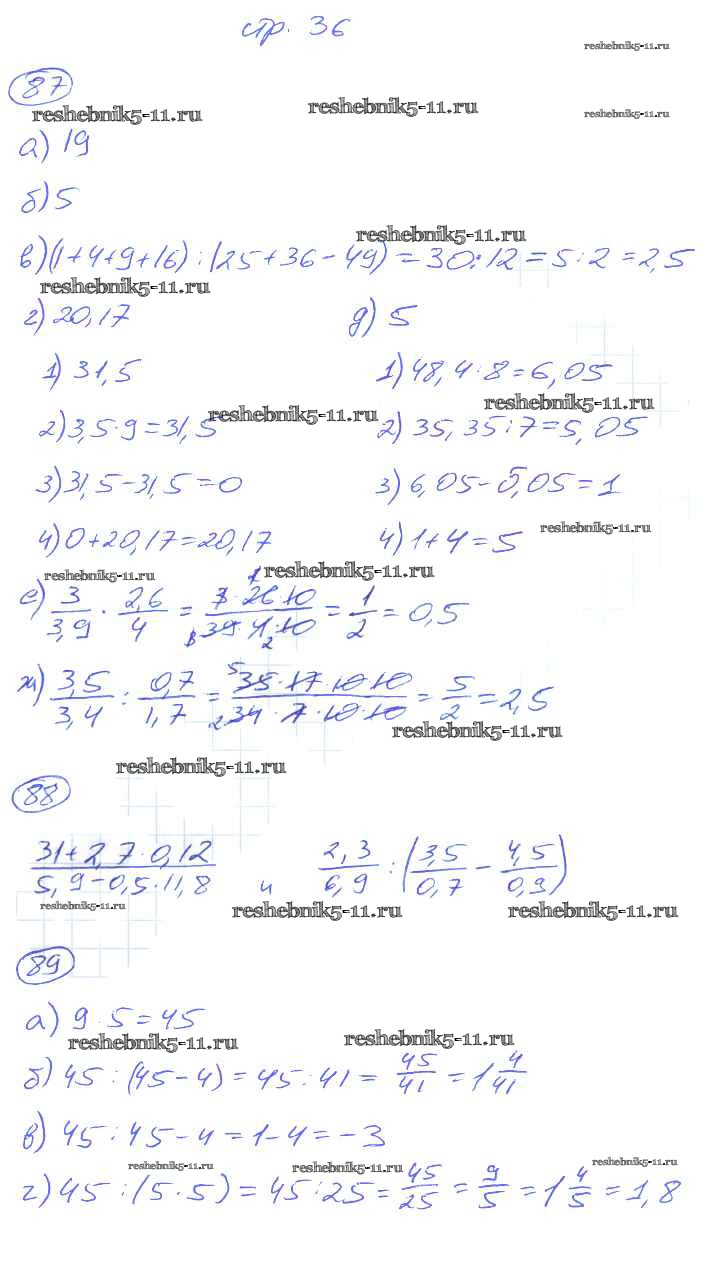 стр. 36
reshebnik5-11.ru
87
reshebnik5-11.ru reshebnik5-11.ru reshebnik5-11.ru
а) 19
б) 5
reshebnik5-11.ru
в) (1+4+9+16) : (25+36-49) = 30:12 = 5:2 = 2,5
reshebnik5-11.ru
г) 20,17 д) 5
1) 31,5 1) 48,4:8=6,05
reshebnik5-11.ru reshebnik5-11.ru
2) 3,5·9=31,5 2) 35,35:7=5,05
3) 31,5-31,5=0 3) 6,05-5,05=1
reshebnik5-11.ru
4) 0+20,17=20,17 4) 1+4=5
reshebnik5-11.ru reshebnik5-11.ru
е) 3/3,9 · 2,6/4 = 3·26·10/39·4·10 = 1/2 = 0,5
ж) 3,5/3,4 : 0,7/1,7 = 35·17·10·10/34·7·10·10 = 5/2 = 2,5
reshebnik5-11.ru
reshebnik5-11.ru
88
31+2,7·0,12/5,9-0,5·11,8 и 2,3/6,9 : (3,5/0,7 - 4,5/0,9)
reshebnik5-11.ru reshebnik5-11.ru reshebnik5-11.ru
89
а) 9·5=45
reshebnik5-11.ru reshebnik5-11.ru
б) 45 : (45-4) = 45:41 = 45/41 = 1 4/41
в) 45:45-4=1-4=-3
reshebnik5-11.ru reshebnik5-11.ru reshebnik5-11.ru
г) 45 : (5·5) = 45:25 = 45/25 = 9/5 = 1 4/5 = 1,8